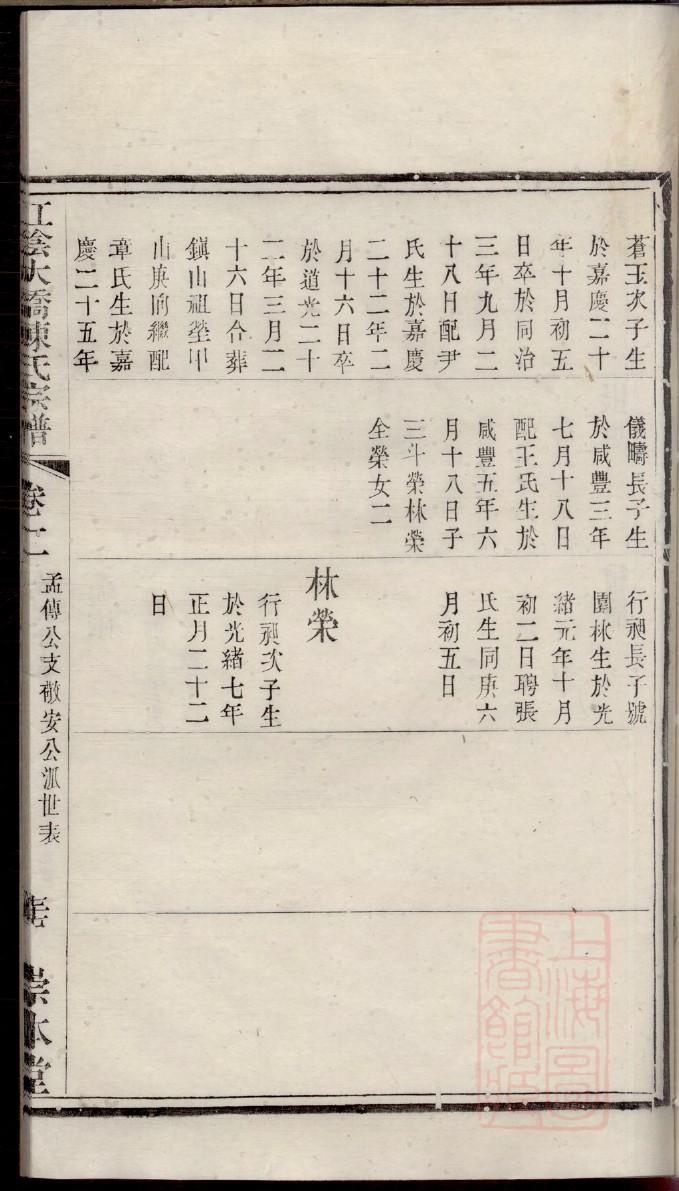 蒼玉次子生
於嘉慶二十
年十月初五
日卒於同治
三年九月二
十八日配尹
氏生於嘉慶
二十二年二
月十六日卒
於道光二十
二年三月二
十六日合葬
鎮山祖塋甲
山庚向繼配
章氏生於嘉
慶二十五年
儀疇長子生
於咸豐三年
七月十八日
配王氏生於
咸豐五年六
月十八日子
三斗榮林榮
全榮女二
行昶長子號
園林生於光
緒元年十月
初二日聘張
氏生同庚六
月初五日
林榮
行昶次子生
於光緒七年
正月二十二
日
江陰大橋陳氏宗譜
卷十二
孟傳公支敬安公派世表
崇本堂
上海圖書館藏